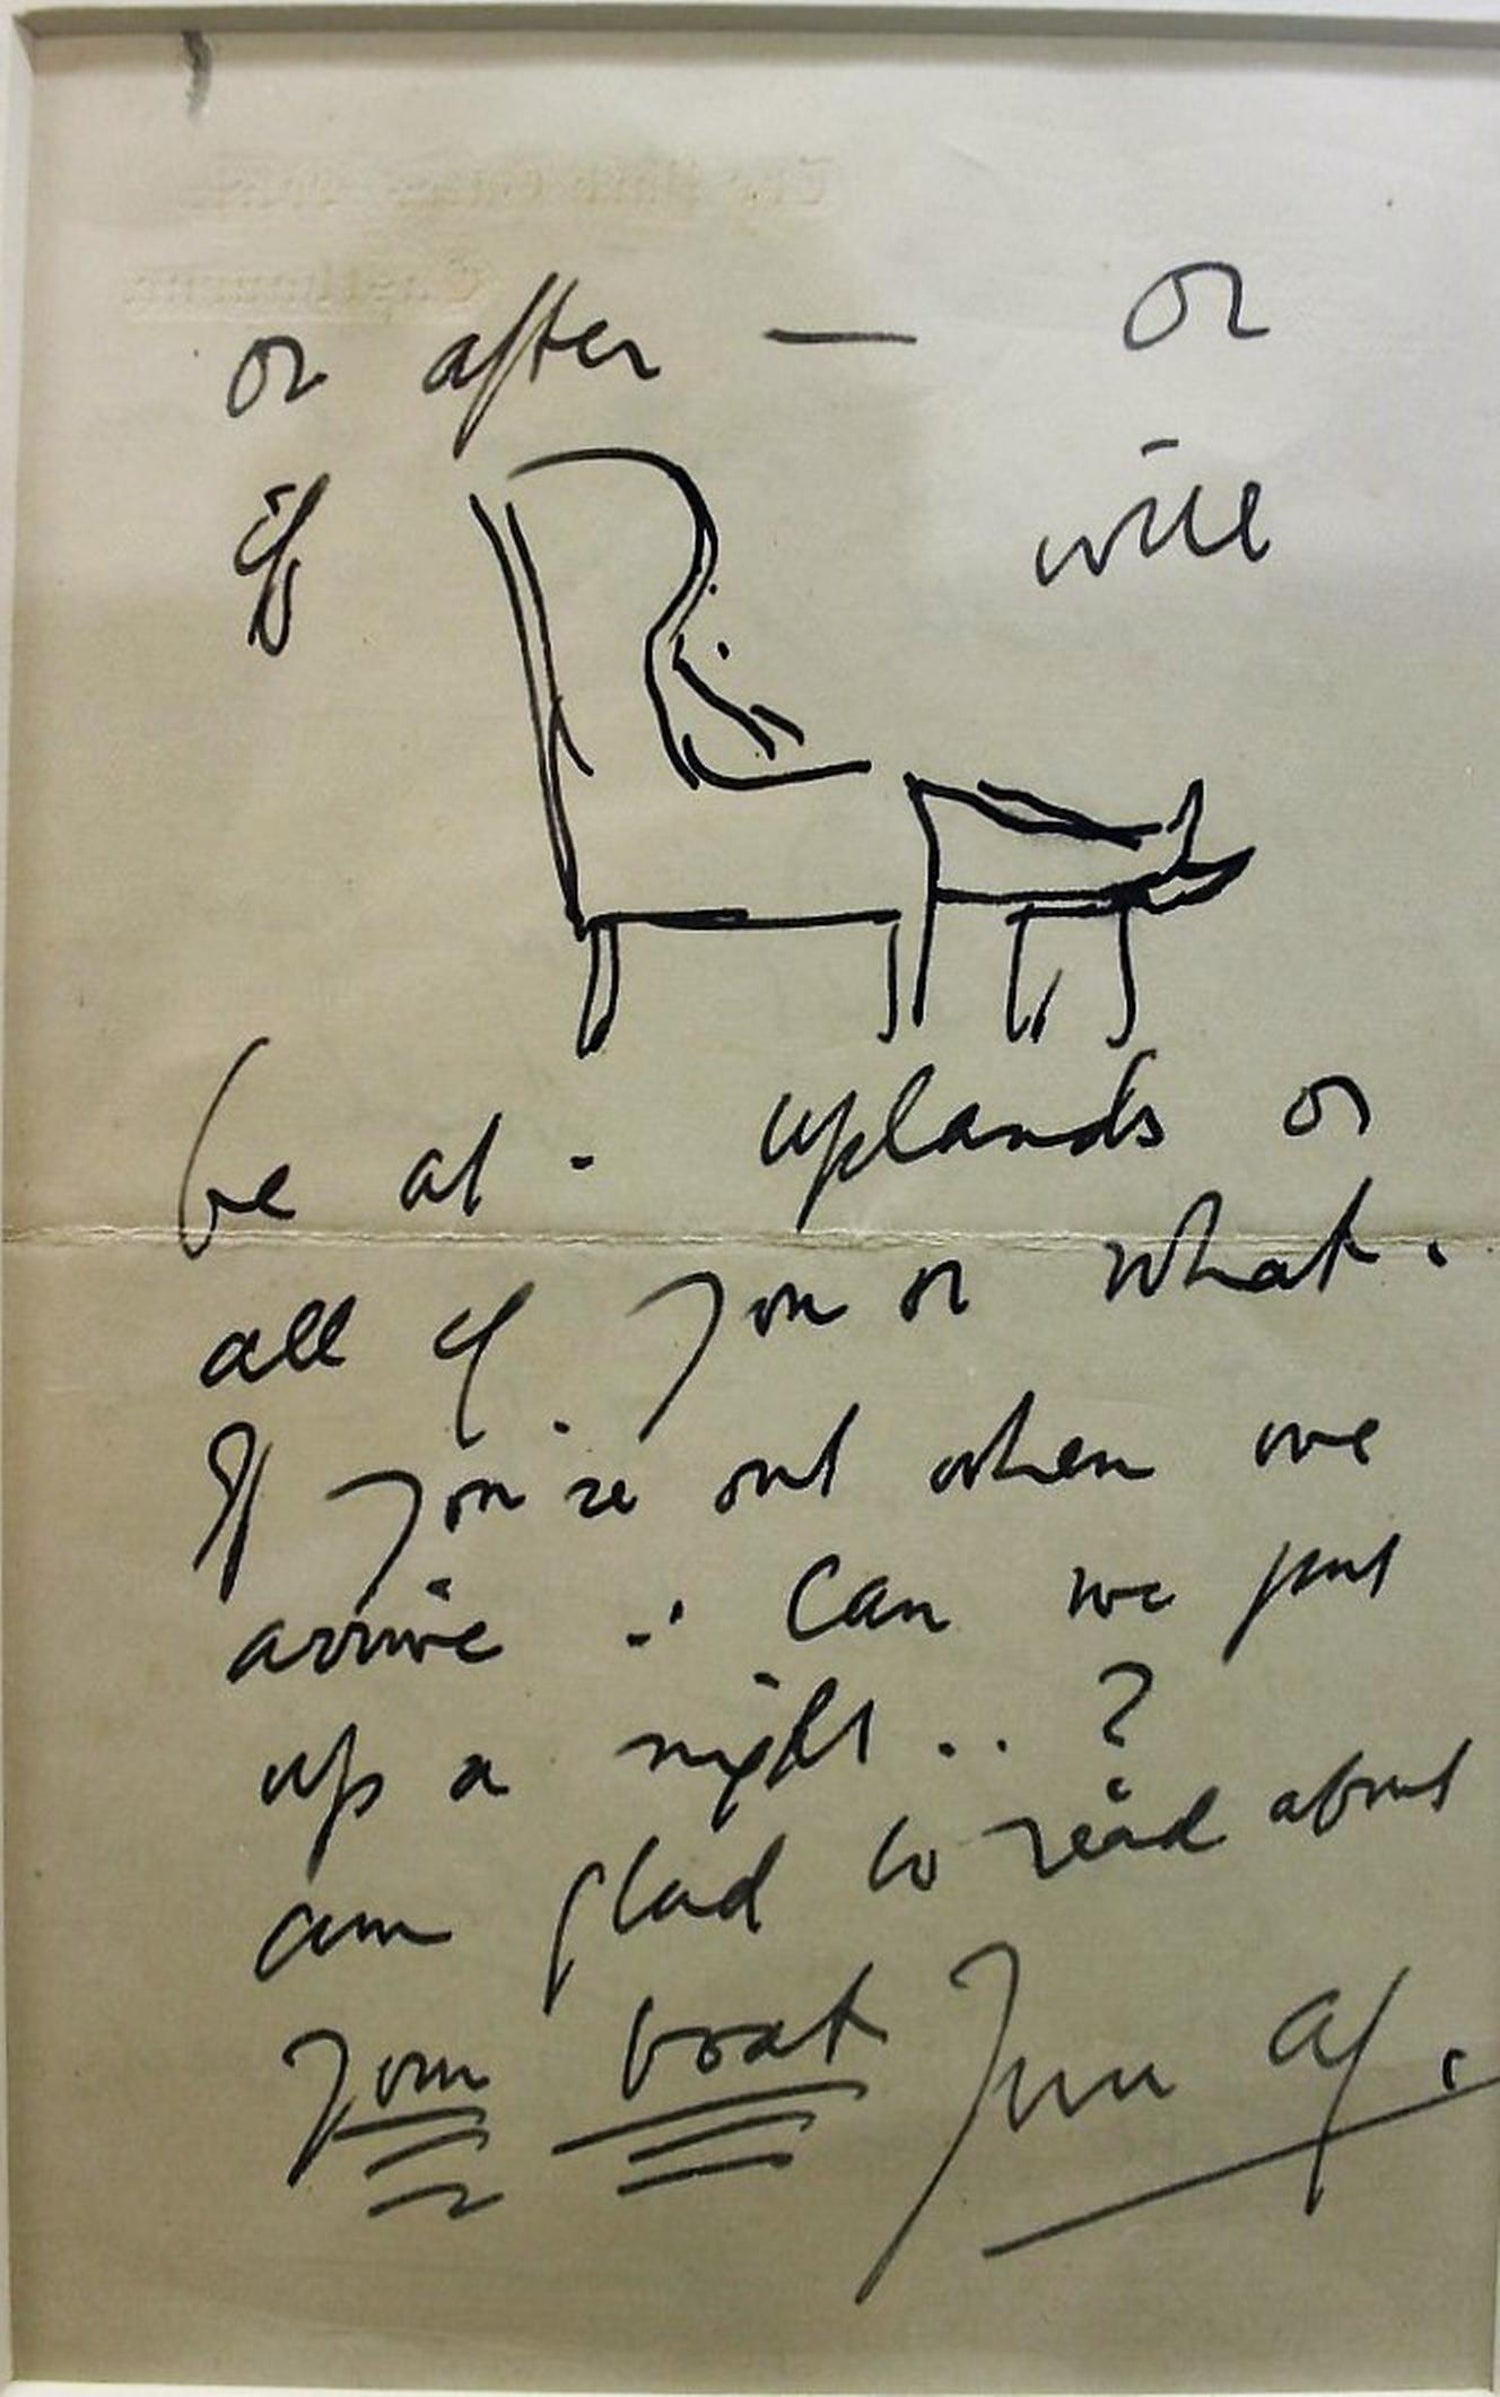 or after — or
if will
be at - uplands or
all of you or what.
If you're out when we
arrive - can we put
up a night .. ?
am glad to read about
your boat